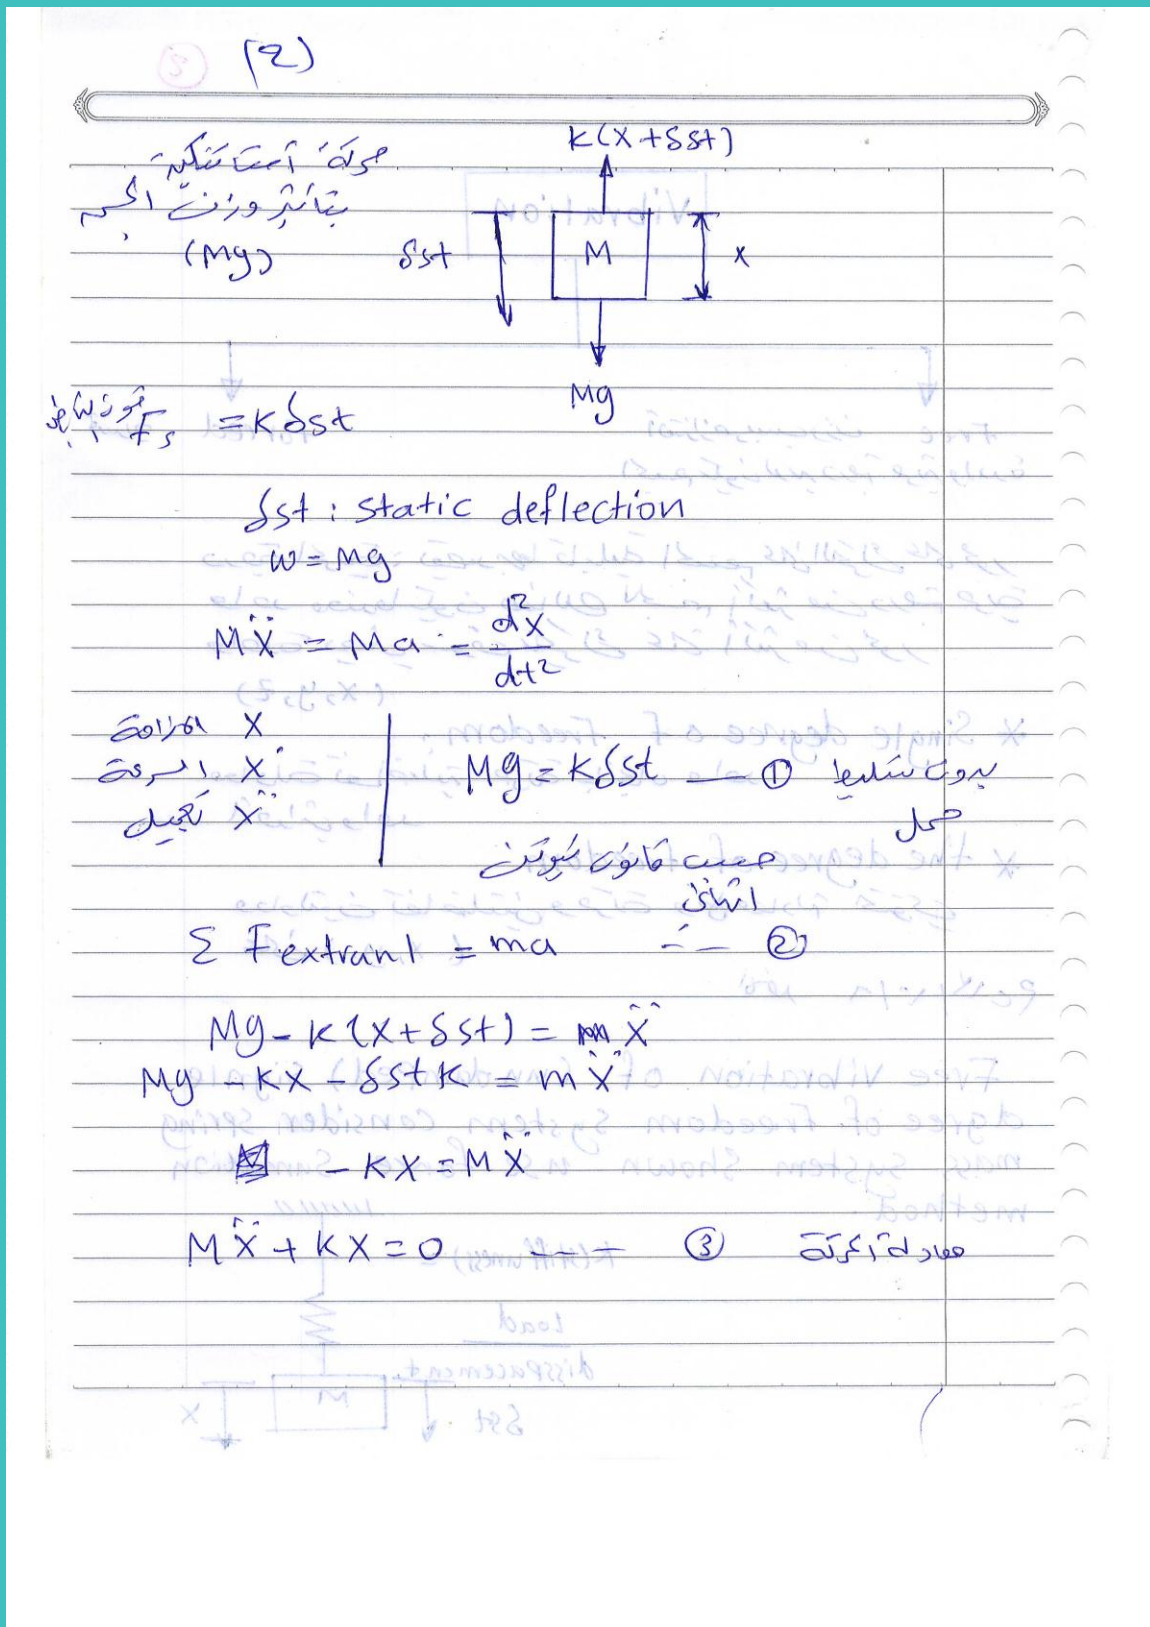 (2)
K(X+δst)
حركة استاتيكية
بتأثير وزن الجسم
(Mg)
δst
M
x
Mg
Fs = Kδst
δst : static deflection
W = Mg
MẌ = Ma = d²x/dt²
X الازاحة
Ẋ السرعة
Ẍ تعجيل
Mg = Kδst — ① بدون تسليط
حمل
حسب قانون نيوتن
الثاني
Σ Fextranl = ma --- ②
Mg - K(X+δst) = mẌ
Mg - KX - δstK = mẌ
- KX = MẌ
MẌ + KX = 0 --- ③ معادلة الحركة